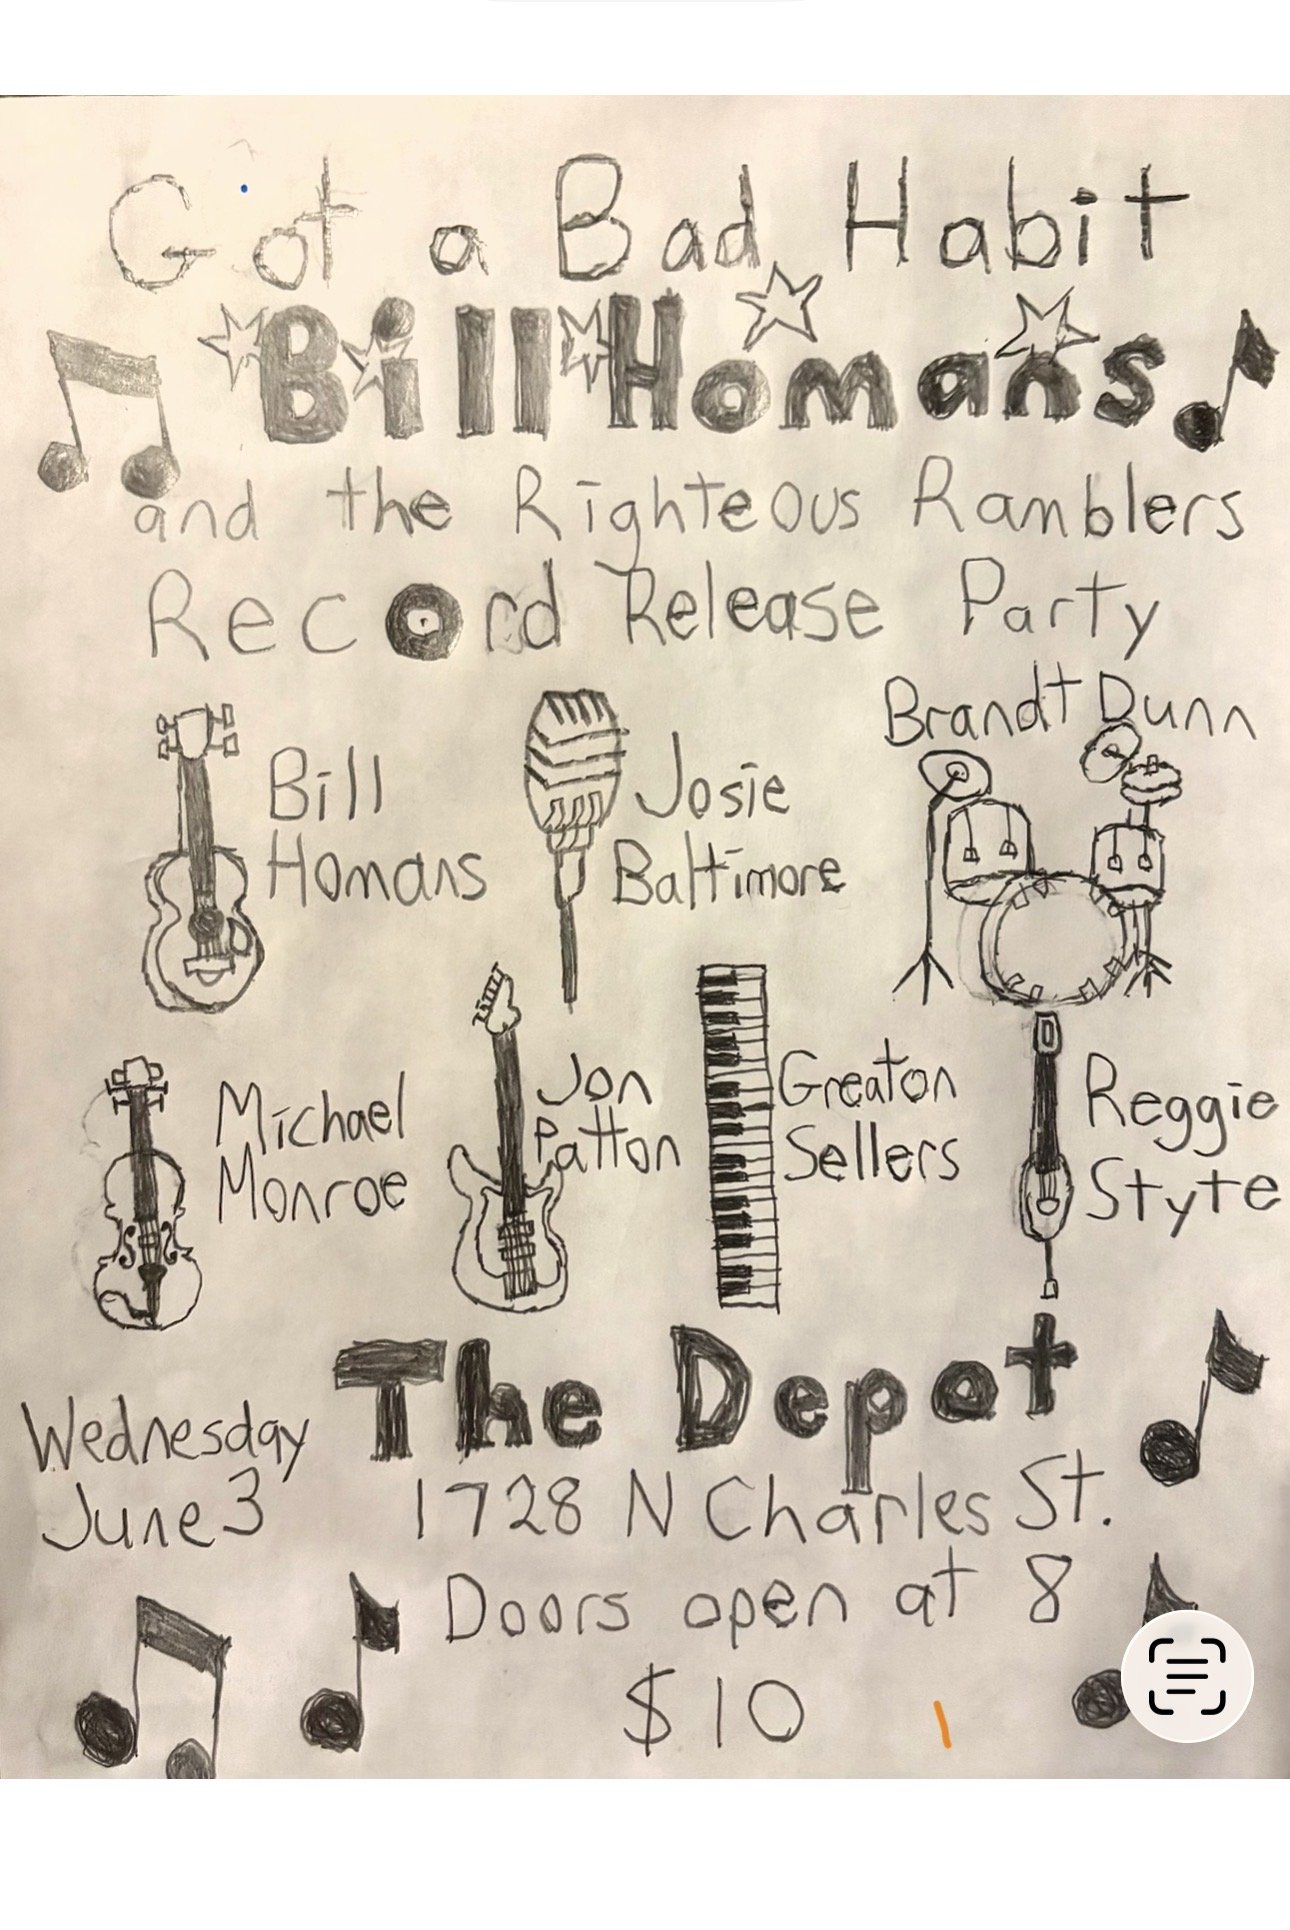 Got a Bad Habit
Bill Homans
and the Righteous Ramblers
Record Release Party
Brandt Dunn
Bill
Homans
Josie
Baltimore
Michael
Monroe
Jon
Patton
Greaton
Sellers
Reggie
Styte
The Depot
Wednesday
June 3
1728 N Charles St.
Doors open at 8
$10